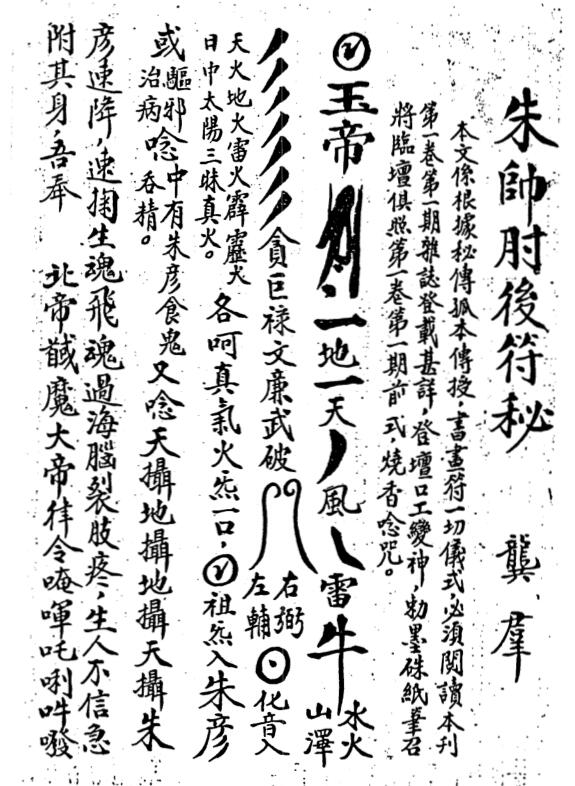 朱帥肘後符秘 龔群
本文係根據秘傳孤本傳授，書畫符一切儀式，必須閱讀本刊
第一卷第一期雜誌登載甚詳，登壇口工變神，勅墨硃紙筆召
將臨壇俱照第一卷第一期前式，燒香唸咒。
玉帝 一地一天 風 雷 水火 山澤
貪巨祿文廉武破 右弼 左輔 化音入
天火地火雷火霹靂火
日中太陽三昧真火。
各呵真氣火炁一口， 祖炁入朱彥
或驅邪治病唸中有朱彥食鬼吞精。又唸天攝地攝地攝天攝朱
彥速降，速掬生魂飛魂過海腦裂肢疼，生人不信急
附其身，吾奉 北帝馘魔大帝律令唵㖷吒唎吽發